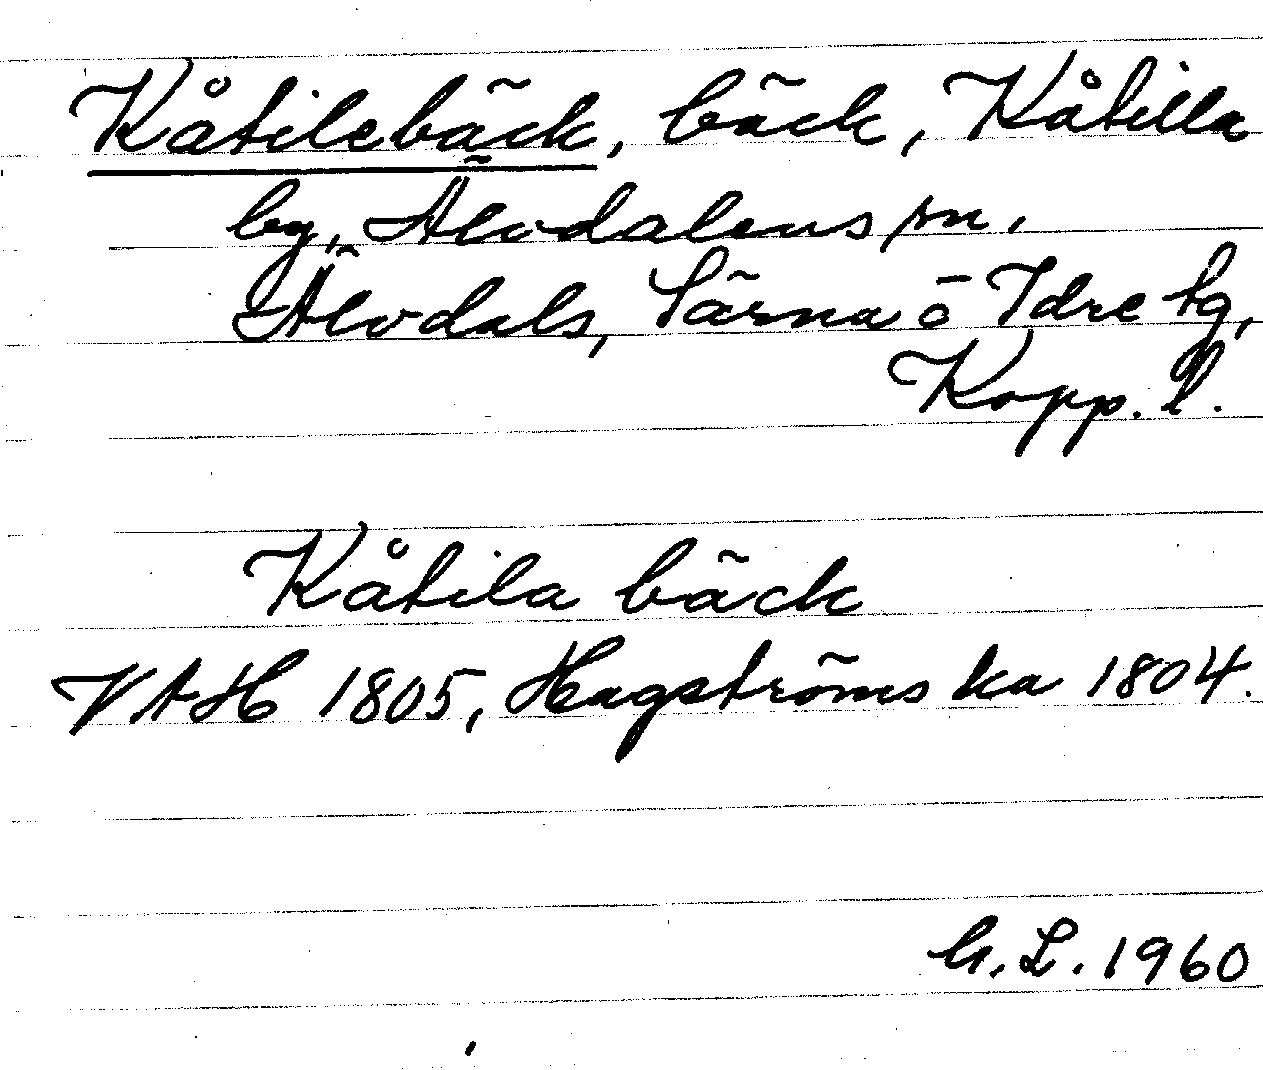 Kåtilebäck, bäck, Kåtilla
by, Älvdalens sn,
Älvdals, Särna ō Idre tg,
Kopp. l.
Kåtila bäck
VAH 1805, Hagströms ka 1804.
G. L. 1960